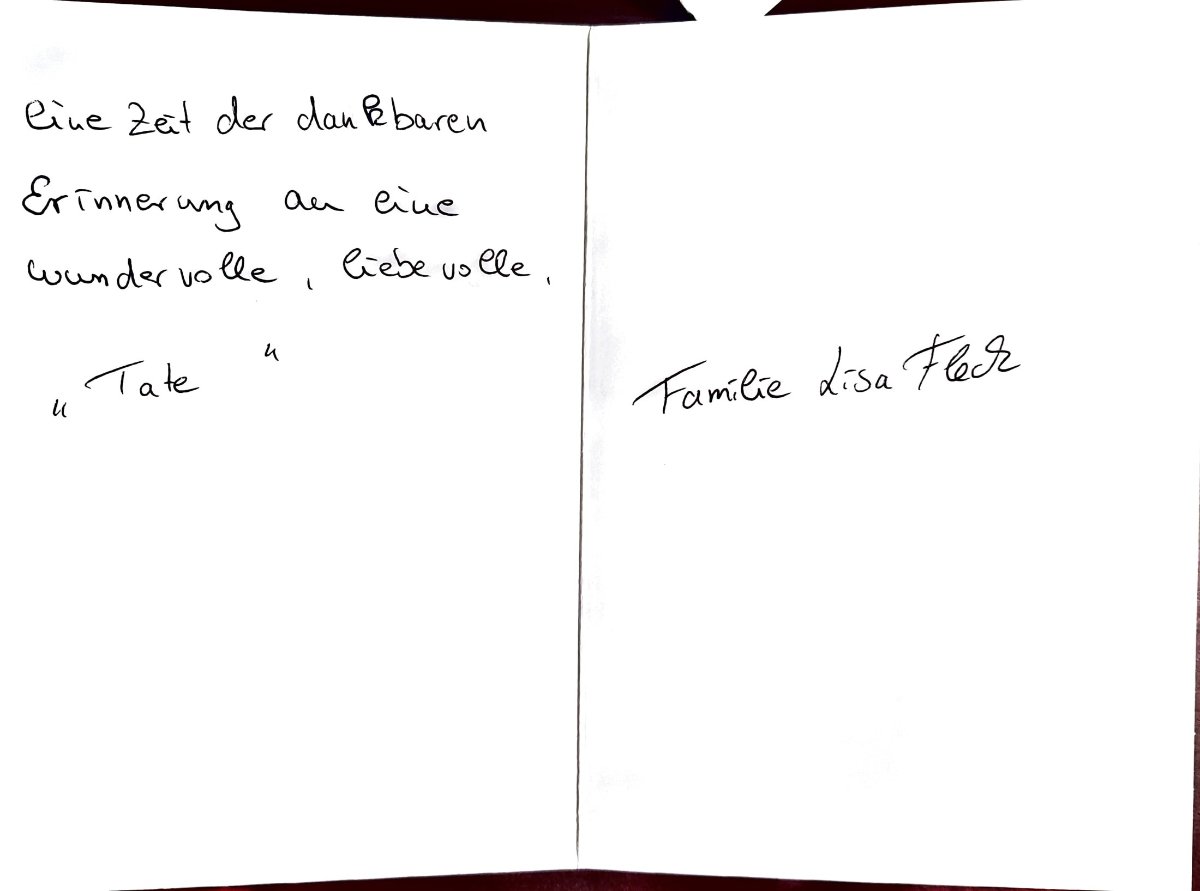 eine Zeit der dankbaren
Erinnerung an eine
wundervolle, liebevolle,
„Tate“
Familie Lisa Fleck